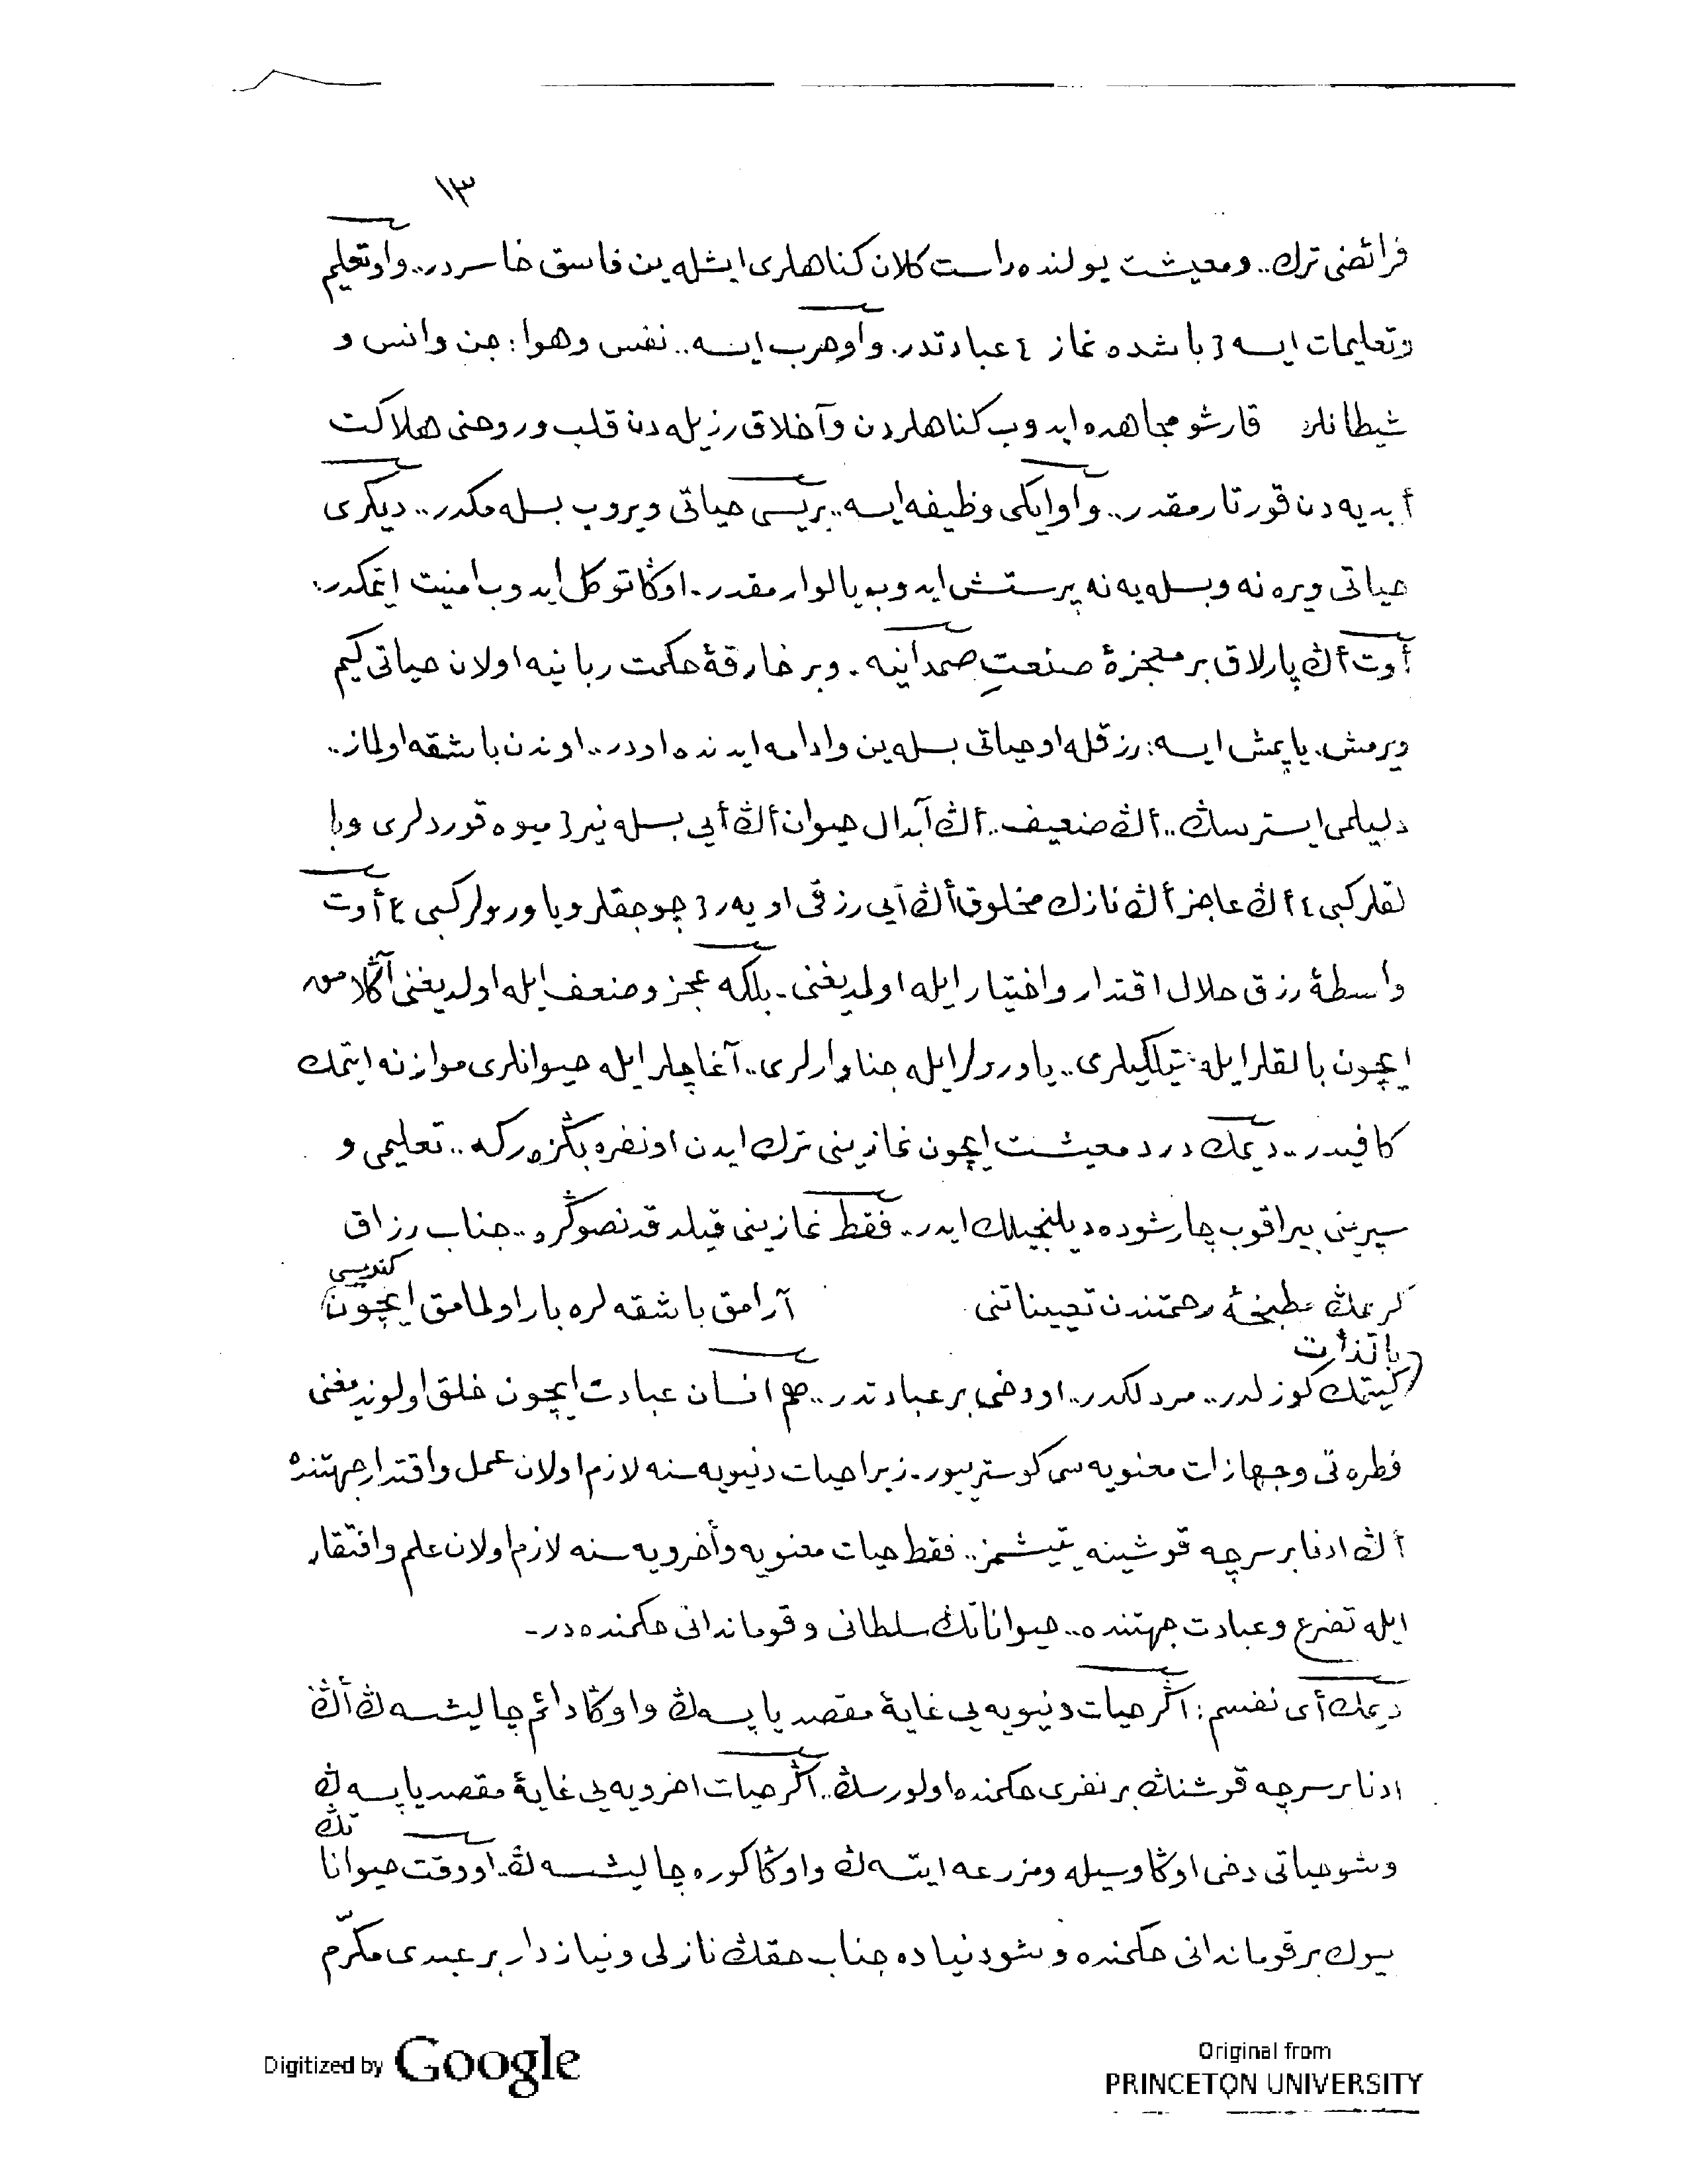 ١٣
فرائضنى ترك.. ومعيشت يولنده راست كلان كناهلرى ايشله ين فاسق خاسردر.. واو تعليم
وتعليمات ايسه { باشده نماز } عبادتدر. واو حرب ايسه.. نفس وهوا: جن وانس و
شيطانلره قارشو مجاهده ايدوب كناهلردن وآخلاق رزيله دن قلب وروحنى هلاكت
أبديه دن قورتارمقدر.. واو ايكى وظيفه ايسه.. بريسى حياتى ويروب بسله مكدر.. ديكرى
حياتى ويره نه وبسله يه نه پرستش ايدوب يالوارمقدر. اوڭا توكل ايدوب امنيت ايتمكدر.
أوت أڭ پارلاق بر معجزهٔ صنعتِ صمدانيه. وبر خارقهٔ حكمت ربانيه اولان حياتى كيم
ويرمش. ياپمش ايسه: رزقله او حياتى بسله ين وادامه ايدنده اودر.. اوندن باشقه اولماز..
دليلمى ايسترسڭ.. أڭ ضعيف.. أڭ آبدال حيوان أڭ أيى بسله نير { ميوه قوردلرى وبا
لقلر كبى } أڭ عاجز أڭ نازك مخلوق أڭ أيى رزقى او يه ر { چوجقلر وياورولر كبى } أوت
واسطهٔ رزق حلال اقتدار واختيار ايله اولمديغنى. بلكه عجز وضعف ايله اولديغنى آڭلامق
ايچون بالقلر ايله تيلكيلرى.. ياورولر ايله جناوارلرى.. آغاچلر ايله حيوانلرى موازنه ايتمك
كافيدر.. ديمك درد معيشت ايچون نمازينى ترك ايدن او نفره بڭزه ركه.. تعليمى و
سيرينى بيراقوب چارشوده ديلنجيلك ايدر.. فقط نمازينى قيلدقدنصوڭره.. جناب رزاق
كريمڭ مطبخهٔ رحمتندن تعييناتنى آرامق باشقه لره بار اولمامق ايچون كنديسى
باتذات
كيتمك كوزلدر.. مردلكدر.. اودخى بر عبادتدر.. هم انسان عبادت ايچون خلق اولونديغنى
فطره تى وجهازات معنويه سى كوستريبور. زيرا حيات دنيويه سنه لازم اولان عمل واقتدار جهتنده
أڭ ادنا بر سرچه قوشينه يتيشمز.. فقط حيات معنويه وأخرويه سنه لازم اولان علم وافتقار
ايله تضرع وعبادت جهتنده.. حيواناتڭ سلطانى وقوماندانى حكمنده در.
ديمك أى نفسم: اڭر حيات دنيويه يى غايهٔ مقصد ياپسه ڭ واوڭا دائم چاليشسه ڭ أڭ
ادنا بر سرچه قوشنڭ بر نفرى حكمنده اولورسڭ.. اڭر حيات اخرويه يى غايهٔ مقصد ياپسه ڭ
وشو حياتى دخى اوڭا وسيله ومزرعه ايتسه ڭ واوڭا كوره چاليشسه ڭ. او وقت حيواناتڭ
بيوك بر قوماندانى حكمنده وشو دنياده جناب حقڭ نازلى ونيازدار بر عبدى مكرّم
Digitized by Google
Original from
PRINCETON UNIVERSITY